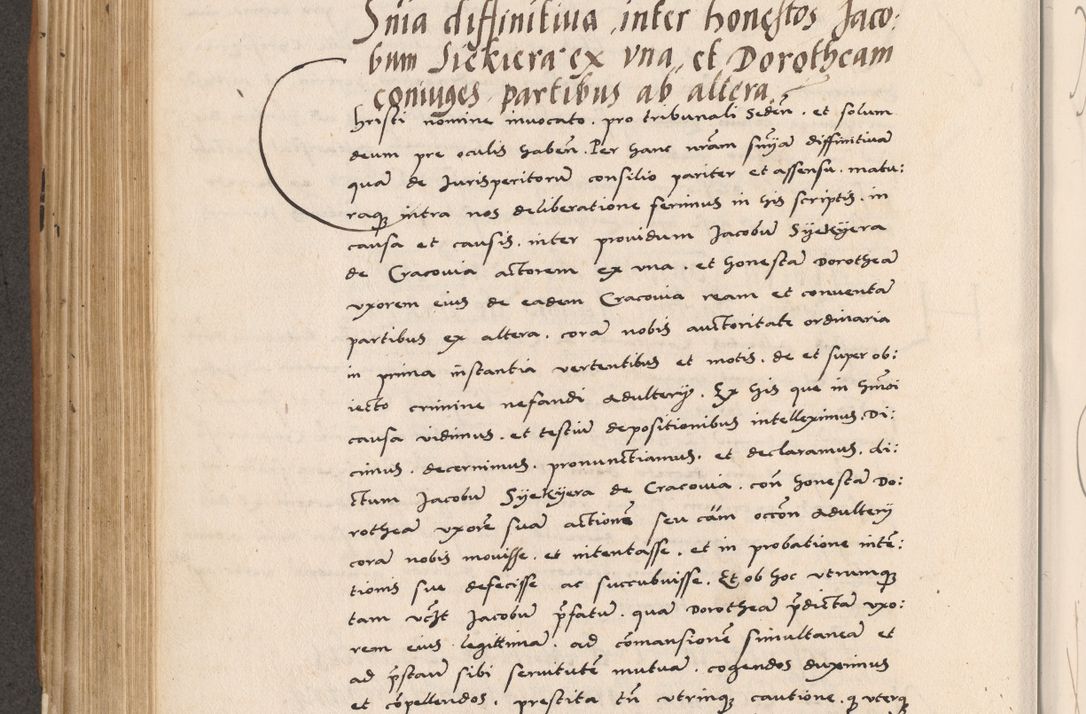 Snia diffinitiua inter honestos Jaco:
bum Siekiera ex vna, et Dorotheam
coniuges partibus ab altera.
Christi nomine inuocato . pro tribunali Seden̄ . et solum
deum pre oculis haben̄ . Per hanc nr̄am sn̄iya diffinitiuā
quā de Jurisperitorū consilio pariter et assensu . matu:
raq̃ intra nos deliberatione ferimus in his scriptis . in
causa et causis . inter prouidum Jacobū Syekyera
de Cracouia actorem ex vna . et honestā Dorotheā
vxorem eius de eadem Cracouia ream et conuentā
partibus ex altera . corā nobis auctoritate ordinaria
in prima instantia vertentibus et motis . de et super ob:
iecto crimine nefandi adulterij . Ex his que in hmōi
causa vidimus . et testiū depositionibus intelleximus . Di:
cimus . decernimus . pronunctiamus . et declaramus . di:
ctum Jacobū Syekyera de Cracouia . con̄ honestā Do:
rotheā vxorē suā actionē seu cām occōn adulterij
corā nobis mouisse . et intentasse . et in probatione intē:
tionis sue defecisse ac succubuisse . Et ob hoc vtrumq̃
tam vc̄zt Jacobū p̄fatū . quā Dorotheā p̄dictā vxo:
rem eius legittimā . ad cōmansionē simultaneā et
ad p̄stan̄ sibi seruitutē mutuā . cogendos duximus
et cōpellendos . prestita tn̄ vtrinq̃ cautione . q̃ vterq̃